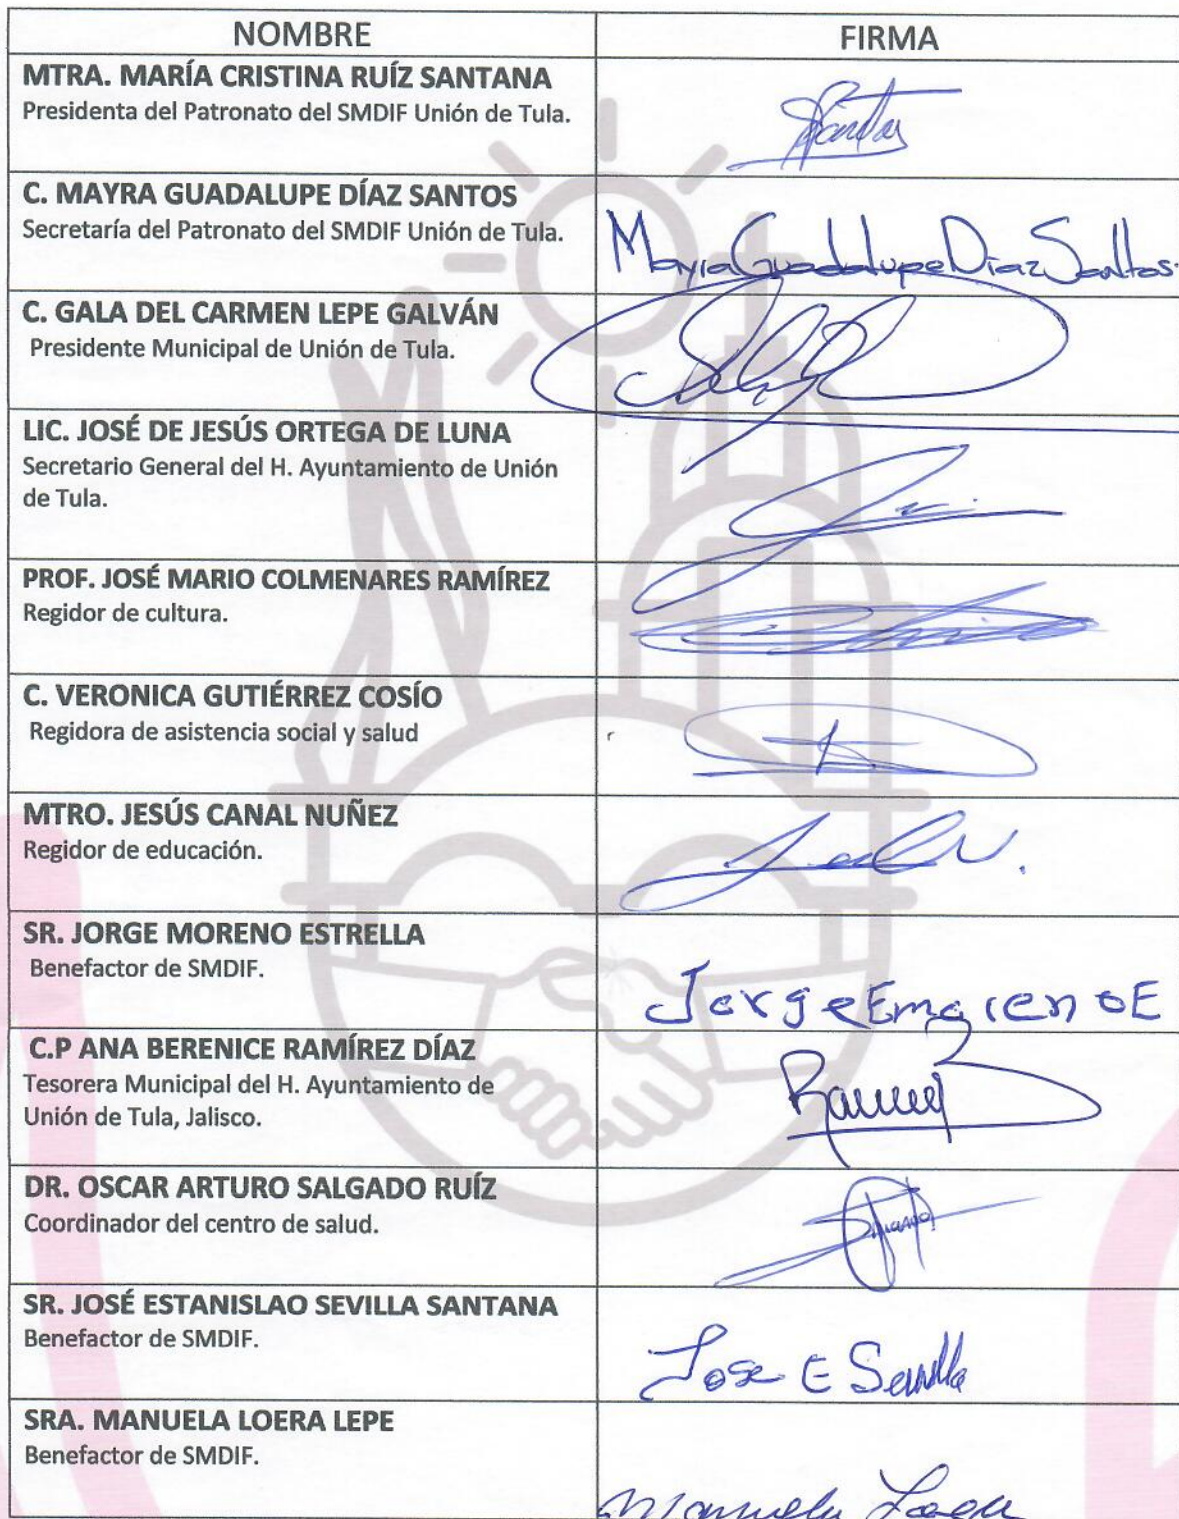 NOMBRE
FIRMA
MTRA. MARÍA CRISTINA RUÍZ SANTANA
Presidenta del Patronato del SMDIF Unión de Tula.
C. MAYRA GUADALUPE DÍAZ SANTOS
Secretaría del Patronato del SMDIF Unión de Tula.
Mayra Guadalupe Diaz Santos.
C. GALA DEL CARMEN LEPE GALVÁN
Presidente Municipal de Unión de Tula.
LIC. JOSÉ DE JESÚS ORTEGA DE LUNA
Secretario General del H. Ayuntamiento de Unión
de Tula.
PROF. JOSÉ MARIO COLMENARES RAMÍREZ
Regidor de cultura.
C. VERONICA GUTIÉRREZ COSÍO
Regidora de asistencia social y salud
MTRO. JESÚS CANAL NUÑEZ
Regidor de educación.
SR. JORGE MORENO ESTRELLA
Benefactor de SMDIF.
Jorge
C.P ANA BERENICE RAMÍREZ DÍAZ
Tesorera Municipal del H. Ayuntamiento de
Unión de Tula, Jalisco.
DR. OSCAR ARTURO SALGADO RUÍZ
Coordinador del centro de salud.
SR. JOSÉ ESTANISLAO SEVILLA SANTANA
Benefactor de SMDIF.
Jose E Sevilla
SRA. MANUELA LOERA LEPE
Benefactor de SMDIF.
Manuela Loera